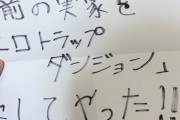 前の実家を
エロトラップ
ダンジョンに
してやった!!